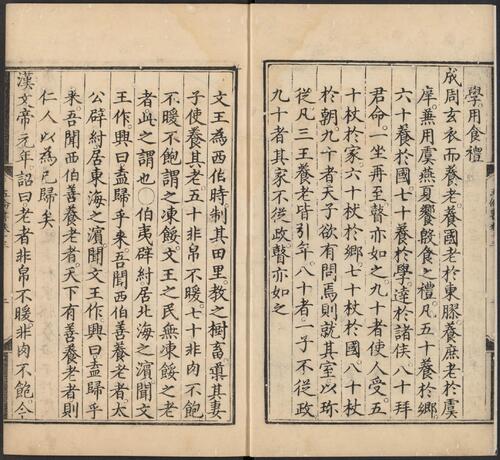 學用食禮
成周玄衣而養老養國老於東膠養庶老於虞
庠兼用虞燕夏饗殷食之禮凡五十養於鄉
六十養於國七十養於學達於諸侯八十拜
君命一坐再至瞽亦如之九十者使人受五
十杖於家六十杖於鄉七十杖於國八十杖
於朝九十者天子欲有問焉則就其室以珎
從凡三王養老皆引年八十者一子不從政
九十者其家不從政瞽亦如之
文王為西伯時制其田里教之樹畜導其妻
子使養其老五十非帛不暖七十非肉不飽
不暖不飽謂之凍餒文王之民無凍餒之老
者此之謂也○伯夷辟紂居北海之濱聞文
王作興曰盍歸乎来吾聞西伯善養老者太
公辟紂居東海之濱聞文王作興曰盍歸乎
来吾聞西伯善養老者天下有善養老者則
仁人以為己歸矣
漢文帝元年詔曰老者非帛不暖非肉不飽今